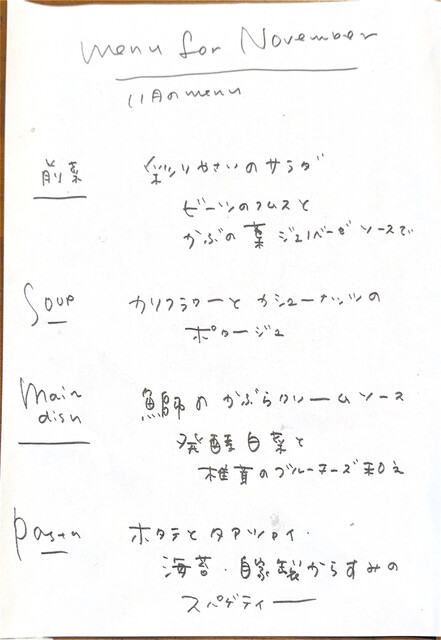 menu for November
11月のmenu
前菜
彩りやさいのサラダ
ビーツのフムスと
かぶの葉ジェノベーゼソースで
Soup
カリフラワーとカシューナッツの
ポタージュ
main
dish
鰤のかぶらクリームソース
発酵白菜と
椎茸のブルーチーズ和え
Pasta
ホタテとタアツァイ・
海苔・自家製からすみの
スパゲティー